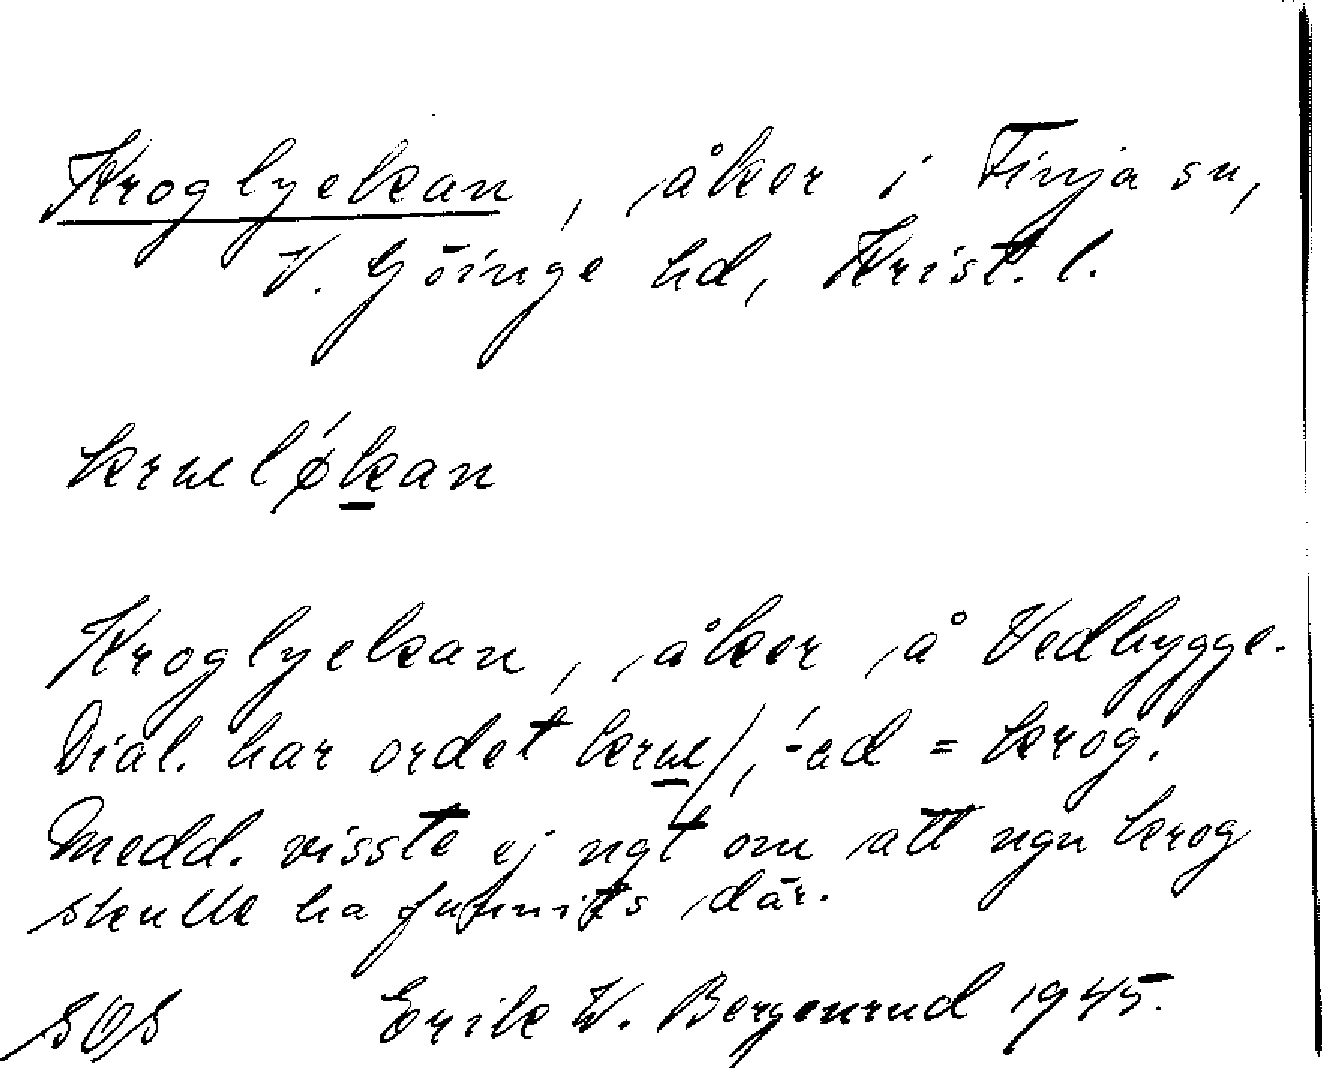 Kroglyckan, åker i Finja sn,
V. Göinge hd, Krist. l.
Kroglyckan, åker å Vedhygge.
Dial. har ordet = krog.
Medd. visste ej ngt om att ngn krog
skulle ha funnits där.
SOS Erik W. Bergenrud 1945.